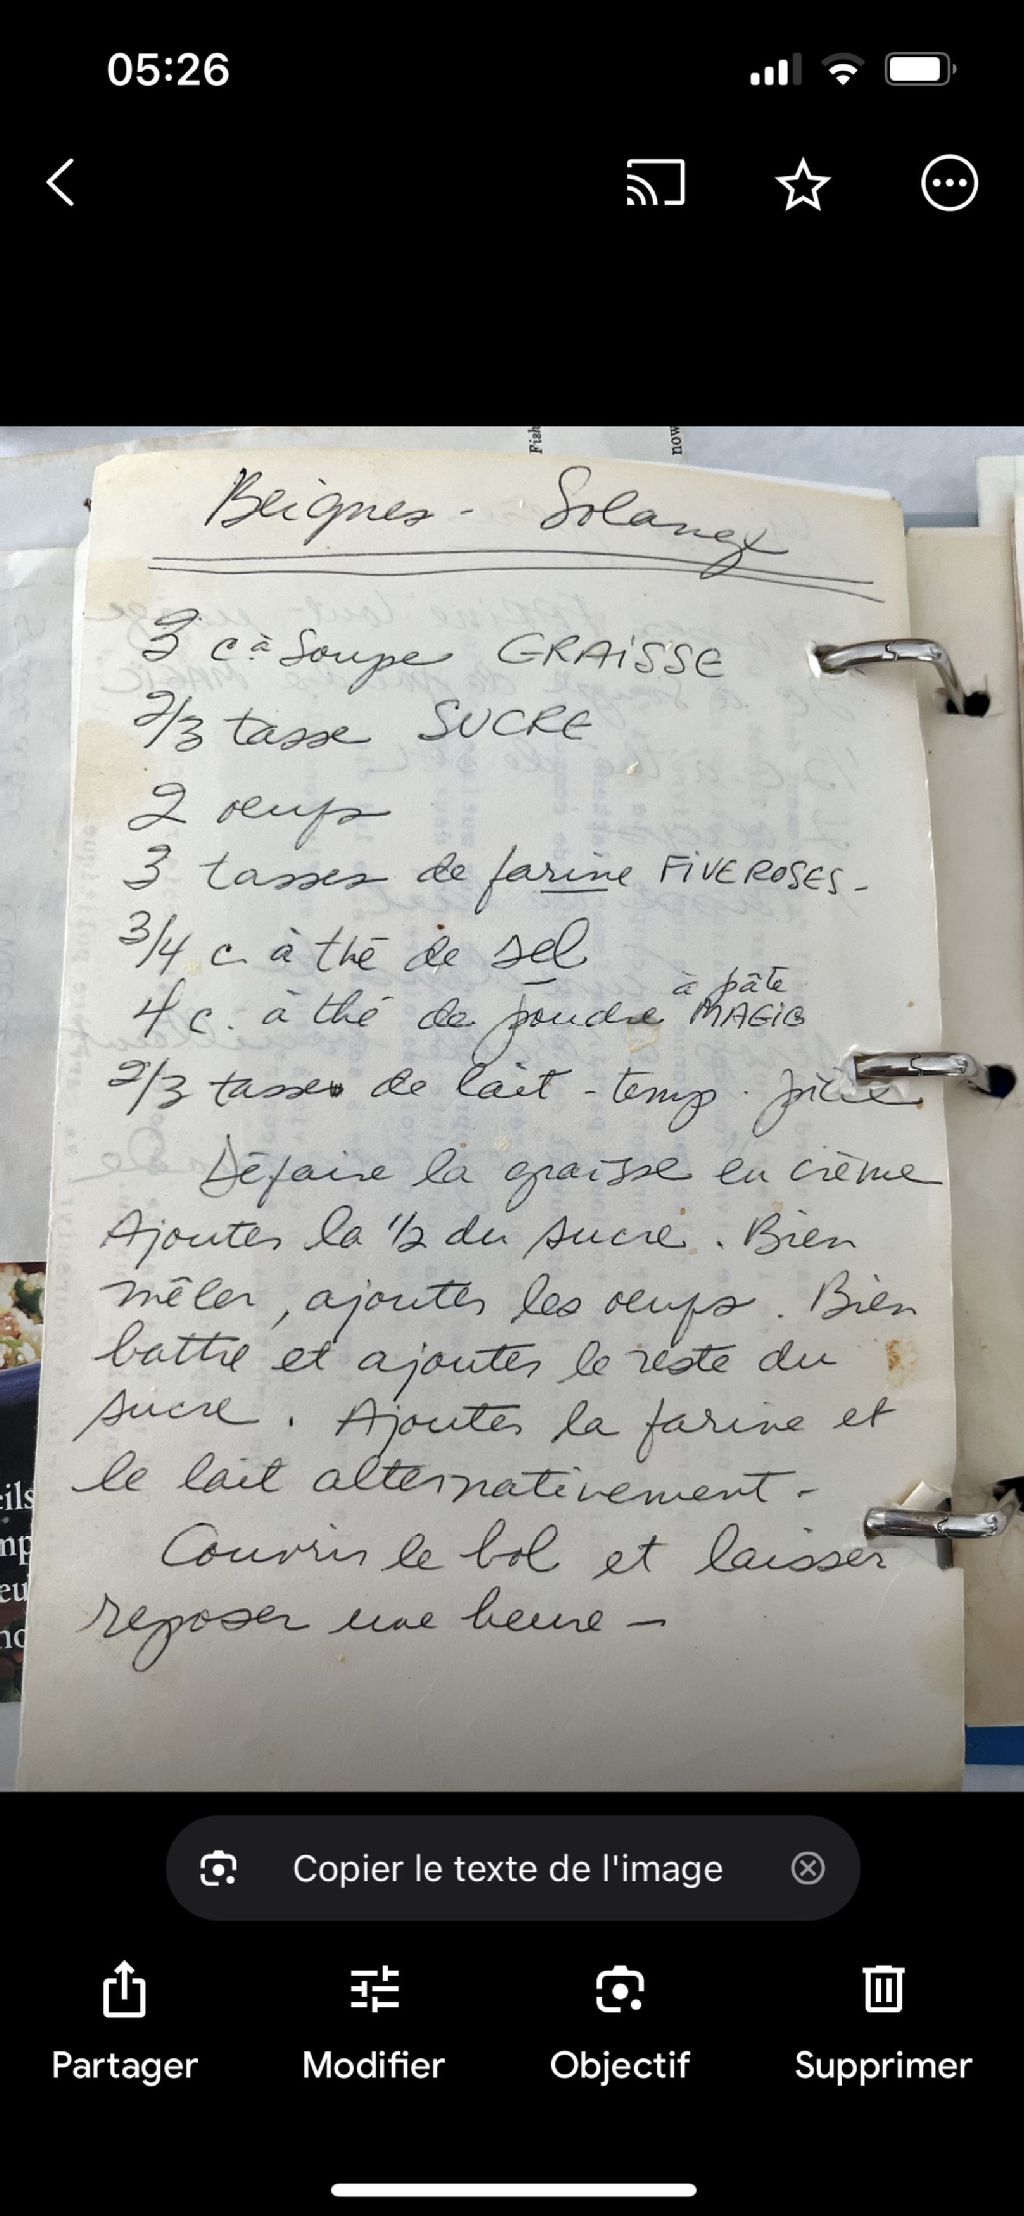 05:26
Fish
now
Beignes - Solange
3 c à Soupe GRAISSE
2/3 tasse SUCRE
2 oeufs
3 tasses de farine FIVE ROSES -
3/4 c. à thé de sel
à pâte
4 c. à thé de poudre MAGIC
2/3 tasse de lait - temp. pièce
Défaire la graisse en crème
Ajouter la 1/2 du sucre. Bien
mêler, ajouter les oeufs. Bien
battre et ajouter le reste du
sucre. Ajouter la farine et
le lait alternativement -
Couvrir le bol et laisser
reposer une heure -
Copier le texte de l'image
Partager
Modifier
Objectif
Supprimer